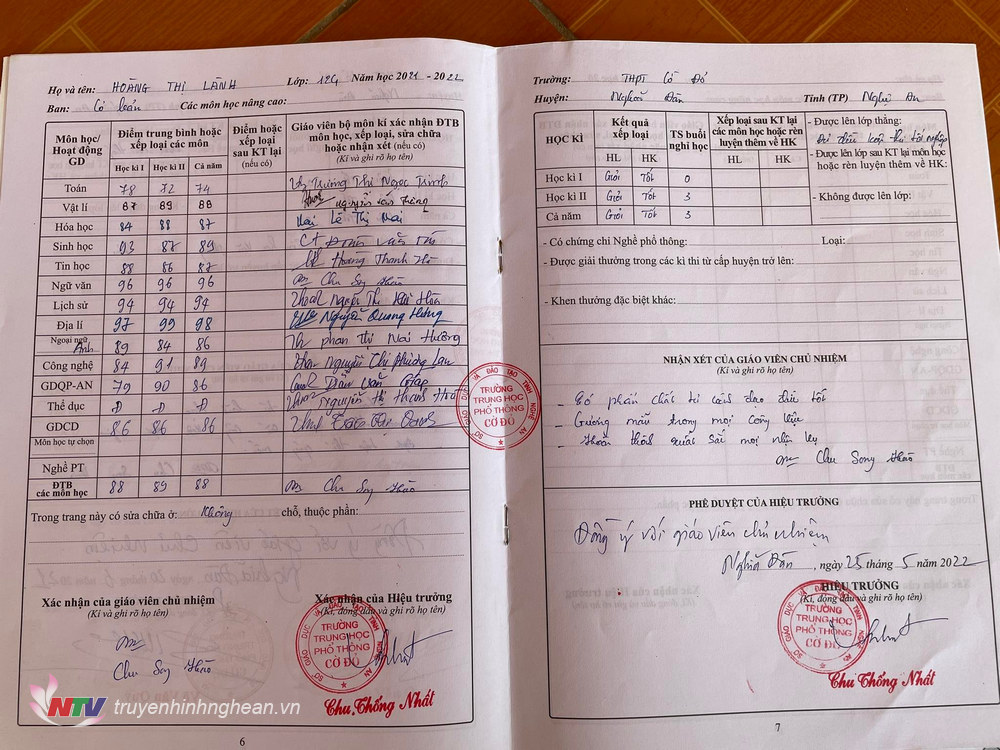 Họ và tên: HOÀNG THỊ LÀNH Lớp: 12G Năm học 2021 - 2022
Ban: Cơ bản Các môn học nâng cao:
Môn học/ Hoạt động GD
Điểm trung bình hoặc xếp loại các môn
Học kì I Học kì II Cả năm
Điểm hoặc xếp loại sau KT lại (nếu có)
Giáo viên bộ môn kí xác nhận ĐTB môn học, xếp loại, sửa chữa hoặc nhận xét (nếu có)
(Kí và ghi rõ họ tên)
Toán 78 72 74 Trương Thị Ngọc Trinh
Vật lí 87 89 88
Hóa học 84 88 87 Lê Thị Mai
Sinh học 93 87 89
Tin học 88 86 87 Hoàng Thanh
Ngữ văn 96 96 96 Chu Song Thảo
Lịch sử 94 94 94 Nguyễn Thị
Địa lí 97 99 98 Nguyễn Quang Hưng
Ngoại ngữ Anh 89 84 86 Phan Thị Mai Hường
Công nghệ 84 91 89 Nguyễn Thị Phương Lan
GDQP-AN 79 90 86
Thể dục Đ Đ Đ Nguyễn
GDCD 86 86 86
Môn học tự chọn
Nghề PT
ĐTB các môn học 88 89 88 Chu Song Thảo
Trong trang này có sửa chữa ở: Không chỗ, thuộc phần:
Xác nhận của giáo viên chủ nhiệm
(Kí và ghi rõ họ tên)
Chu Song Thảo
Xác nhận của Hiệu trưởng
(Kí, đóng dấu và ghi rõ họ tên)
TRƯỜNG
TRUNG HỌC
PHỔ THÔNG
CỜ ĐỎ
Chu Thống Nhất
6
Trường: THPT Cờ Đỏ
Huyện: Nghĩa Đàn Tỉnh (TP) Nghệ An
HỌC KÌ
Kết quả xếp loại
HL HK
TS buổi nghỉ học
Xếp loại sau KT lại các môn học hoặc rèn luyện thêm về HK
HL HK
Học kì I Giỏi Tốt 0
Học kì II Giỏi Tốt 3
Cả năm Giỏi Tốt 3
- Được lên lớp thẳng:
Đủ điều kiện thi tốt nghiệp
- Được lên lớp sau KT lại môn học hoặc rèn luyện thêm về HK:
- Không được lên lớp:
- Có chứng chỉ Nghề phổ thông: Loại:
- Được giải thưởng trong các kì thi từ cấp huyện trở lên:
- Khen thưởng đặc biệt khác:
NHẬN XÉT CỦA GIÁO VIÊN CHỦ NHIỆM
(Kí và ghi rõ họ tên)
- Có phẩm chất tư cách đạo đức tốt
- Gương mẫu trong mọi công việc
- Hoàn thành xuất sắc mọi nhiệm vụ
Chu Song Thảo
SỞ GIÁO DỤC VÀ ĐÀO TẠO TỈNH NGHỆ AN
TRƯỜNG
TRUNG HỌC
PHỔ THÔNG
CỜ ĐỎ
PHÊ DUYỆT CỦA HIỆU TRƯỞNG
Đồng ý với giáo viên chủ nhiệm
Nghĩa Đàn, ngày 25 tháng 5 năm 2022
HIỆU TRƯỞNG
(Kí, đóng dấu và ghi rõ họ tên)
TRƯỜNG
TRUNG HỌC
PHỔ THÔNG
CỜ ĐỎ
Chu Thống Nhất
7
NTV truyenhinhnghean.vn